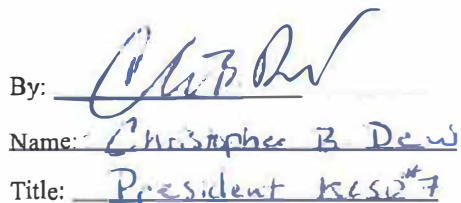 By:
Name: Christopher B Dew
Title: President KCSD #7